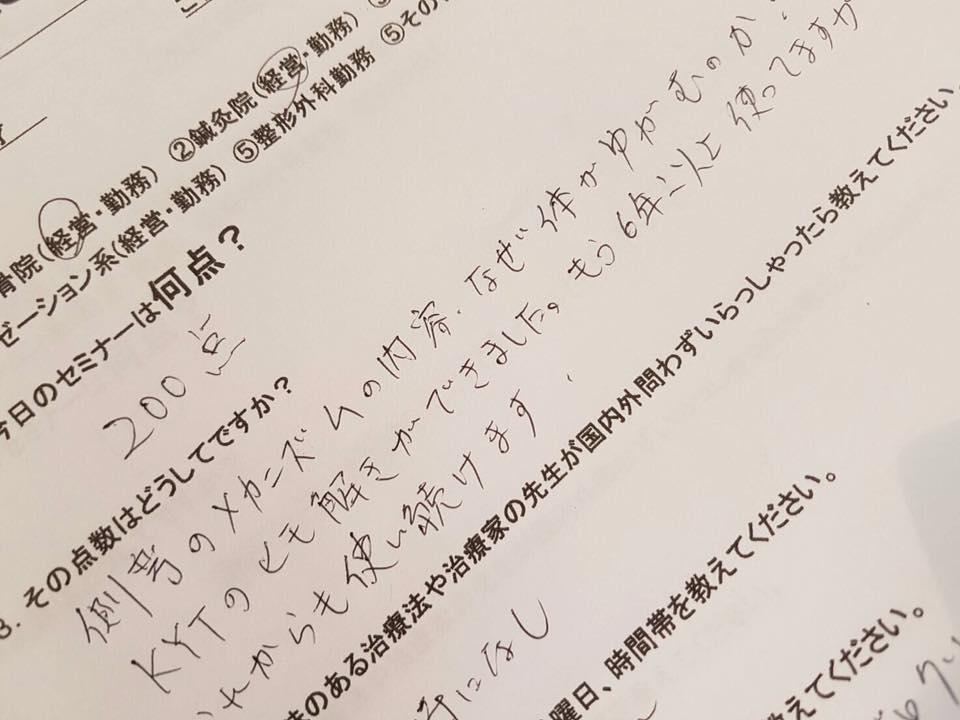 ②鍼灸院(経営・勤務)
骨院(経営・勤務) ⑤整形外科勤務 ⑤その
ゼーション系(経営・勤務)
今日のセミナーは何点?
200点
3. その点数はどうしてですか?
側弯のメカニズムの内容、なぜ体がゆがむのか?
KYTのヒモ解きができました。もう6年以上使ってますが
れからも使い続けます。
味のある治療法や治療家の先生が国内外問わずいらっしゃったら教えてください。
特になし
曜日、時間帯を教えてください。
教えてください。